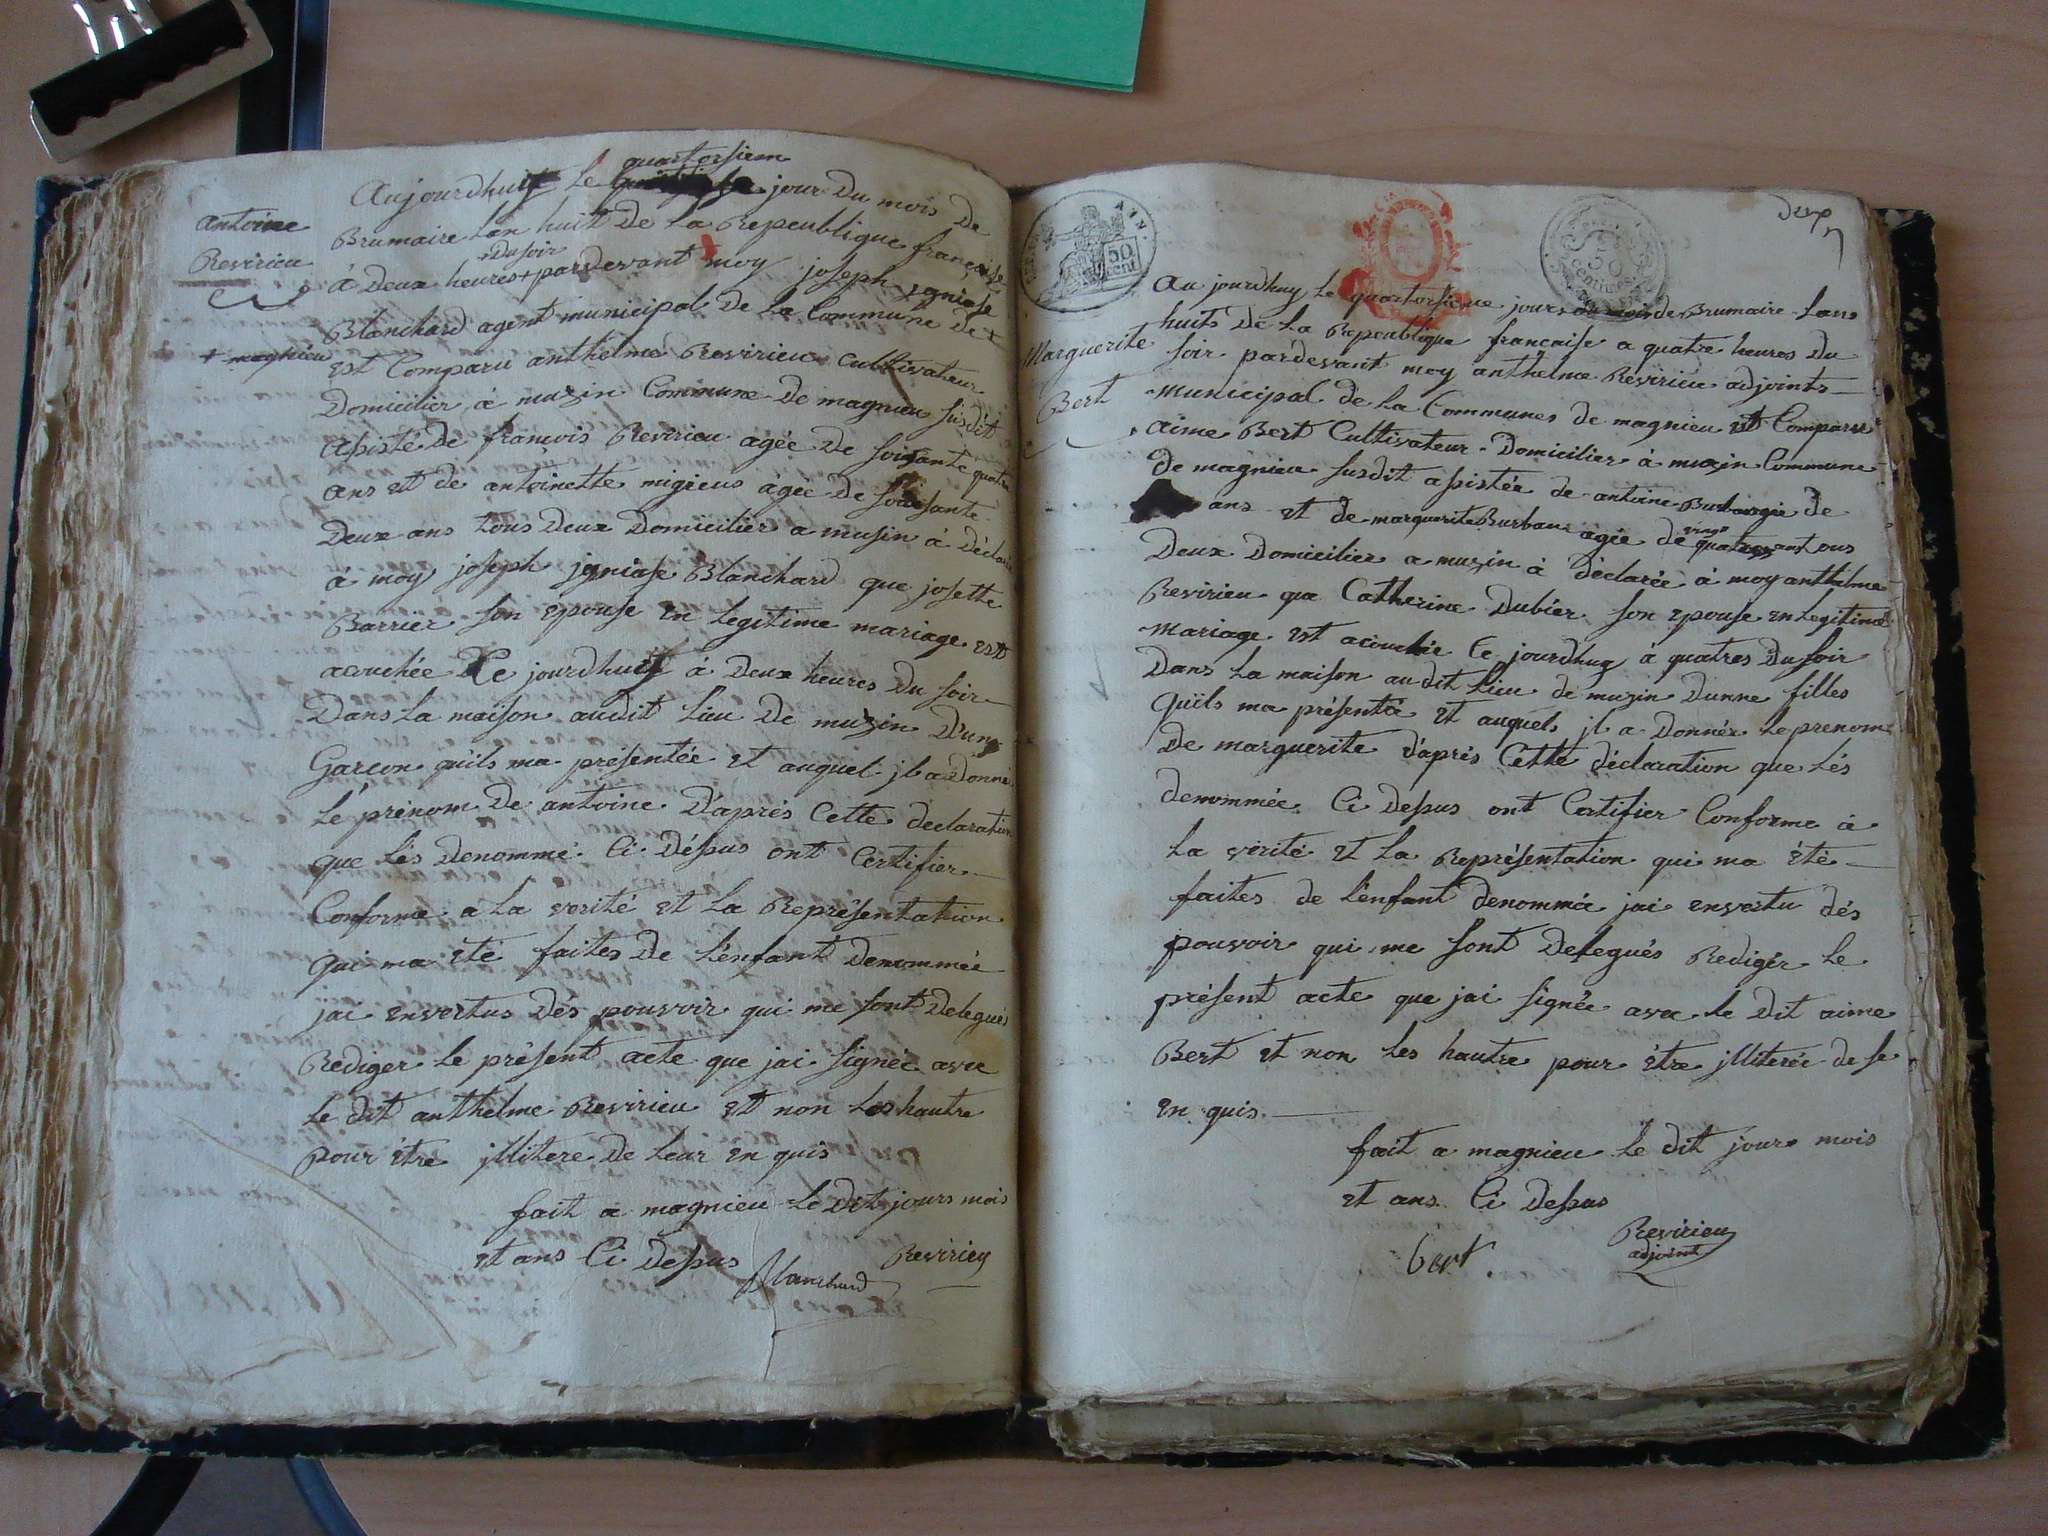 quartorsiem
Aujourdhuit le jour Du mois De
antoine
Revirieu
Brumaire Lan huit De la Repeublique françoise
Du soir
à Deux heures + pardevant moy joseph jgniase
Blanchard agent municipal de la Commune De +
+ magnieu
est Comparu anthelme Revirieu Cultivateur
Domicilier à muzin Commune De magnieu susdit
assisté de francois Revirieu agée De soixante quatre
ans et de antoinette migieus agée De soissante
Deux ans tous Deux Domicilier a musin à Déclaré
à moy joseph jgniase Blanchard que josette
Barrier son epouse en legitime mariage est
acouchée Ce jourdhuit à Deux heures Du soir
Dans la maison audit lieu De muzin D'un
Garçon quils ma présentée et auquel jl a Donné
le prénom De antoine D'après Cette declaration
que lés Denommé Ci Déssus ont Certifier
Conforme a la verité et la Représentation
qui ma été faites De lénfant Denommée
jai envertus Dés pouvoir qui me sont Delegués
Rediger le présent acte que jai signée avec
le dit anthelme Revirieu et non les hautre
pour être jllitere De leur en quis
fait a magnieu le Dit jours mois
et ans Ci Dessus
Blanchard
Revirieu
AIN
50
cent
50
centimes
Marguerite
Bert
Au jourdhuy le quartorsieme jours du mois de Brumaire lans
huits De la Repeublique française a quatre heures Du
soir pardevant moy anthelme Revirieu adjoints
municipal de la Communes de magnieu est Comparu
aime Bert Cultivateur Domicilier à muzin Commune
de magnieu susdit assistée de antoine de
ans et de marguerite Burban agée de
vingt
quatre ant ous
Deux Domicilier a muzin à déclarée à moy anthelme
Revirieu que Catherine Dubier son epouse en legitime
mariage est acouchée Ce jourdhuy à quatres Du soir
Dans la maison au dit lieu de muzin Dunne filles
quils ma présentée et auquels jl a Donnér le prenom
De marguerite d'après Cette déclaration que lés
denommée Ci Dessus ont Certifier Conforme à
la vérité et la Représentation qui ma été
faites de l'énfant denommée jai envertu dés
pouvoir qui me sont Delegués Redigér le
présent acte que jai signée avec le Dit aime
Bert et non les hautre pour être jlliterée de se
en quis
fait a magnieu le dit jours mois
et ans Ci Dessus
bert
Revirieu
adjoint